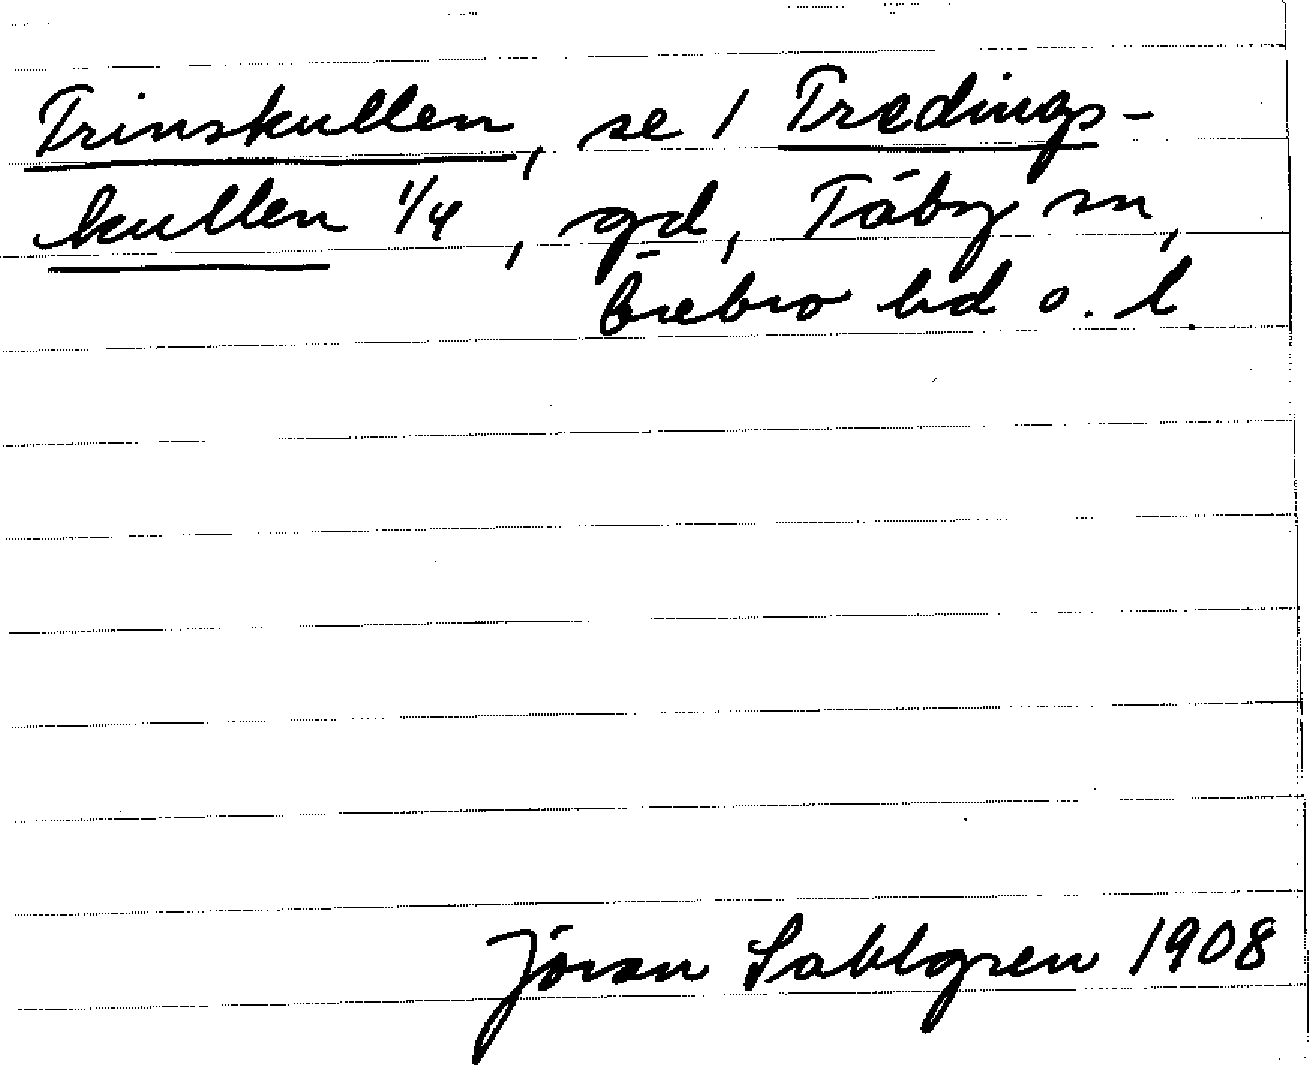 Trinskullen, se 1 Tredings-
kullen 1/4, gd, Täby sn,
Örebro hd o. l.
Jöran Sahlgren 1908